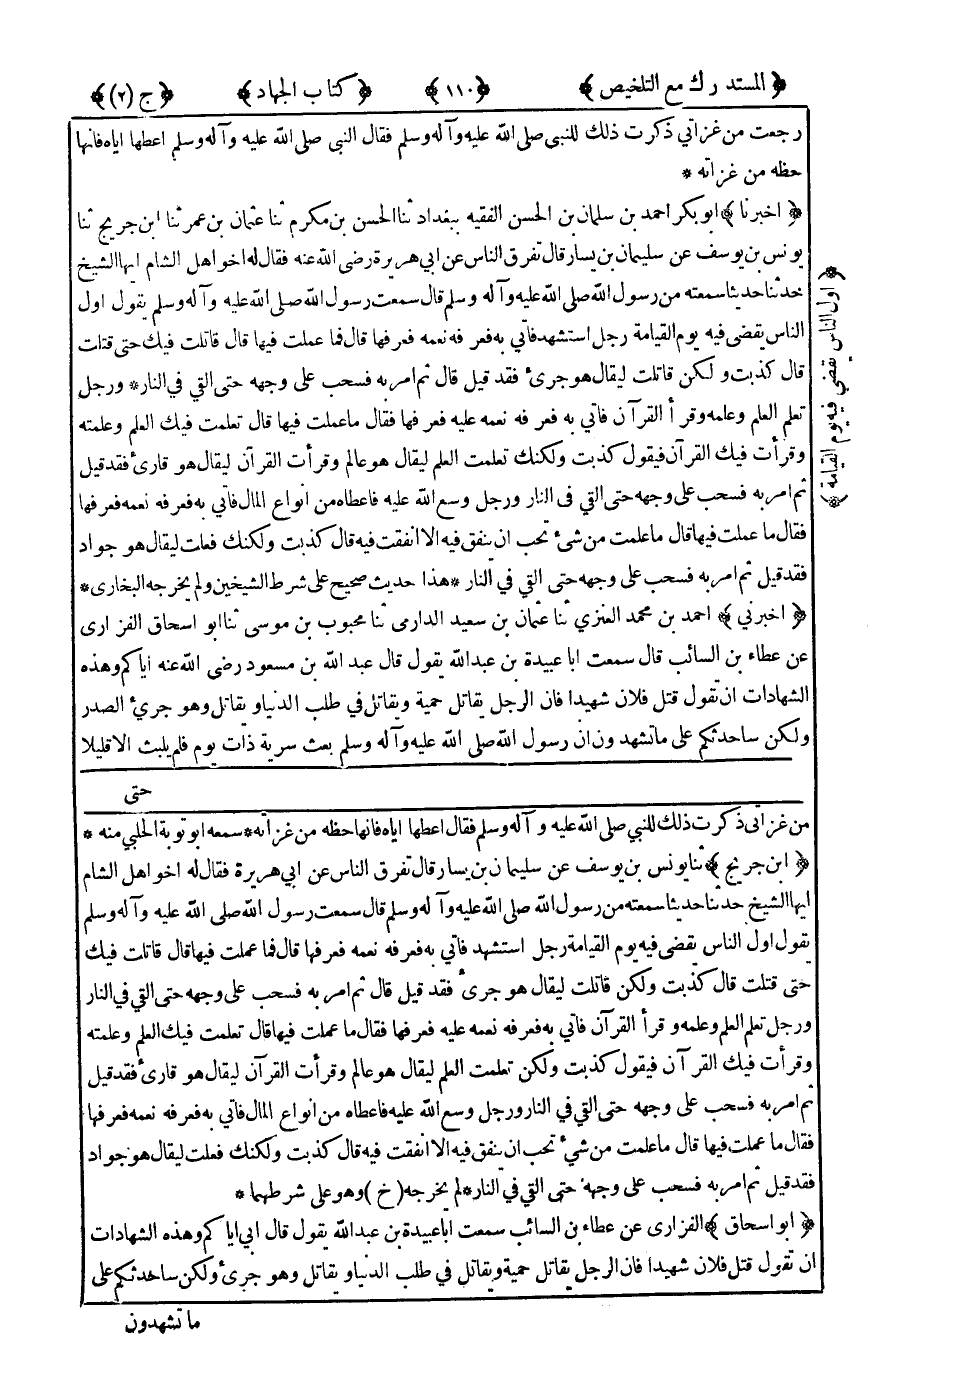 ﴿ المستدرك مع التلخيص ﴾ ﴿ ١١٠ ﴾ ﴿ كتاب الجهاد ﴾ ﴿ ج (٢) ﴾
رجعت من غزاتي ذكرت ذلك للنبي صلى الله عليه وآله وسلم فقال النبى صلى الله عليه وآله وسلم اعطها اياه فانها
حظه من غزاته *
﴿ اخبرنا ﴾ ابوبكر احمد بن سلمان بن الحسن الفقيه ببغداد ثنا الحسن بن مكرم ثنا عثمان بن عمر ثنا ابن جريج ثنا
يونس بن يوسف عن سليمان بن يسار قال تفرق الناس عن ابي هريرة رضى الله عنه فقال له اخو اهل الشام ايها الشيخ
حدثنا حديثا سمعته من رسول الله صلى الله عليه وآله وسلم قال سمعت رسول الله صلى الله عليه وآله وسلم يقول اول
الناس يقضى فيه يوم القيامة رجل استشهد فأتي به فعرفه نعمه فعرفها قال فما عملت فيها قال قاتلت فيك حتى قتلت
قال كذبت ولكن قاتلت ليقال هو جرئ فقد قيل قال ثم امر به فسحب على وجهه حتى القي في النار * ورجل
تعلم العلم وعلمه وقرأ القرآن فاتي به فعرفه نعمه عليه فعرفها فقال ما عملت فيها قال تعلمت فيك العلم وعلمته
وقرأت فيك القرآن فيقول كذبت ولكنك تعلمت العلم ليقال هو عالم وقرأت القرآن ليقال هو قارئ فقد قيل
ثم امر به فسحب على وجهه حتى القي فى النار ورجل وسع الله عليه فاعطاه من انواع المال فاتي به فعرفه نعمه فعرفها
فقال ما عملت فيها قال ما علمت من شئ تحب ان ينفق فيه الا انفقت فيه قال كذبت ولكنك فعلت ليقال هو جواد
فقد قيل ثم امر به فسحب على وجهه حتى القي في النار * هذا حديث صحيح على شرط الشيخين ولم يخرجه البخارى *
﴿ اخبرني ﴾ احمد بن محمد العنزي ثنا عثمان بن سعيد الدارمى ثنا محبوب بن موسى ثنا ابو اسحاق الفزارى
عن عطاء بن السائب قال سمعت ابا عبيدة بن عبد الله يقول قال عبد الله بن مسعود رضى الله عنه اياكم وهذه
الشهادات ان تقول قتل فلان شهيدا فان الرجل يقاتل حمية ويقاتل في طلب الدنيا ويقاتل وهو جرئ الصدر
ولكن ساحدثكم على ما تشهدون ان رسول الله صلى الله عليه وآله وسلم بعث سرية ذات يوم فلم يلبث الا قليلا
حتى
﴿ اول الناس يقضي فيه يوم القيامة ﴾
من غزاتى ذكرت ذلك للنبي صلى الله عليه وآله وسلم فقال اعطها اياه فانها حظه من غزاته * سمعه ابو توبة الحلبي منه *
﴿ ابن جريج ﴾ ثنا يونس بن يوسف عن سليمان بن يسار قال تفرق الناس عن ابي هريرة فقال له اخو اهل الشام
ايها الشيخ حدثنا حديثا سمعته من رسول الله صلى الله عليه وآله وسلم قال سمعت رسول الله صلى الله عليه وآله وسلم
يقول اول الناس يقضى فيه يوم القيامة رجل استشهد فأتي به فعرفه نعمه فعرفها قال فما عملت فيها قال قاتلت فيك
حتى قتلت قال كذبت ولكن قاتلت ليقال هو جرئ فقد قيل قال ثم امر به فسحب على وجهه حتى القي في النار
ورجل تعلم العلم وعلمه وقرأ القرآن فاتي به فعرفه نعمه عليه فعرفها فقال ما عملت فيها قال تعلمت فيك العلم وعلمته
وقرأت فيك القرآن فيقول كذبت ولكن تعلمت العلم ليقال هو عالم وقرأت القرآن ليقال هو قارئ فقد قيل
ثم امر به فسحب على وجهه حتى القي في النار ورجل وسع الله عليه فاعطاه من انواع المال فاتي به فعرفه نعمه فعرفها
فقال ما عملت فيها قال ما علمت من شئ تحب ان ينفق فيه الا انفقت فيه قال كذبت ولكنك فعلت ليقال هو جواد
فقد قيل ثم امر به فسحب على وجهه حتى القي في النار * لم يخرجه (خ) وهو على شرطهما *
﴿ ابو اسحاق ﴾ الفزارى عن عطاء بن السائب سمعت ابا عبيدة بن عبد الله يقول قال ابي اياكم وهذه الشهادات
ان تقول قتل فلان شهيدا فان الرجل يقاتل حمية ويقاتل في طلب الدنيا ويقاتل وهو جرئ ولكن ساحدثكم على
ما تشهدون